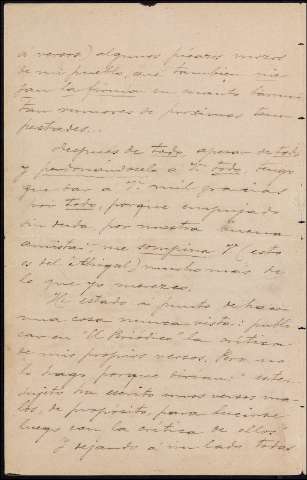 á versos) algunos pícaros mozos
de mi pueblo, que tambien nie-
gan la firma en cuanto barrun-
tan rumores de próximas tem-
pestades...
Después de todo, apesar de todo
y perdonándoselo á V. todo, tengo
que dar á V. mil gracias
por todo, porque empujado
sin duda, por nuestra buena
amistad, me V. (esto
es del mucho mas de
lo que yo merezco.
He estado á punto de hacer
una cosa nunca vista: publi-
car en "El la crítica
de mis propios versos. Pero no
lo hago porque dirian: "este
sujeto ha escrito unos versos ma-
los, de propósito, para lucirse
luego con la crítica de ellos."
Y dejando á un lado todas